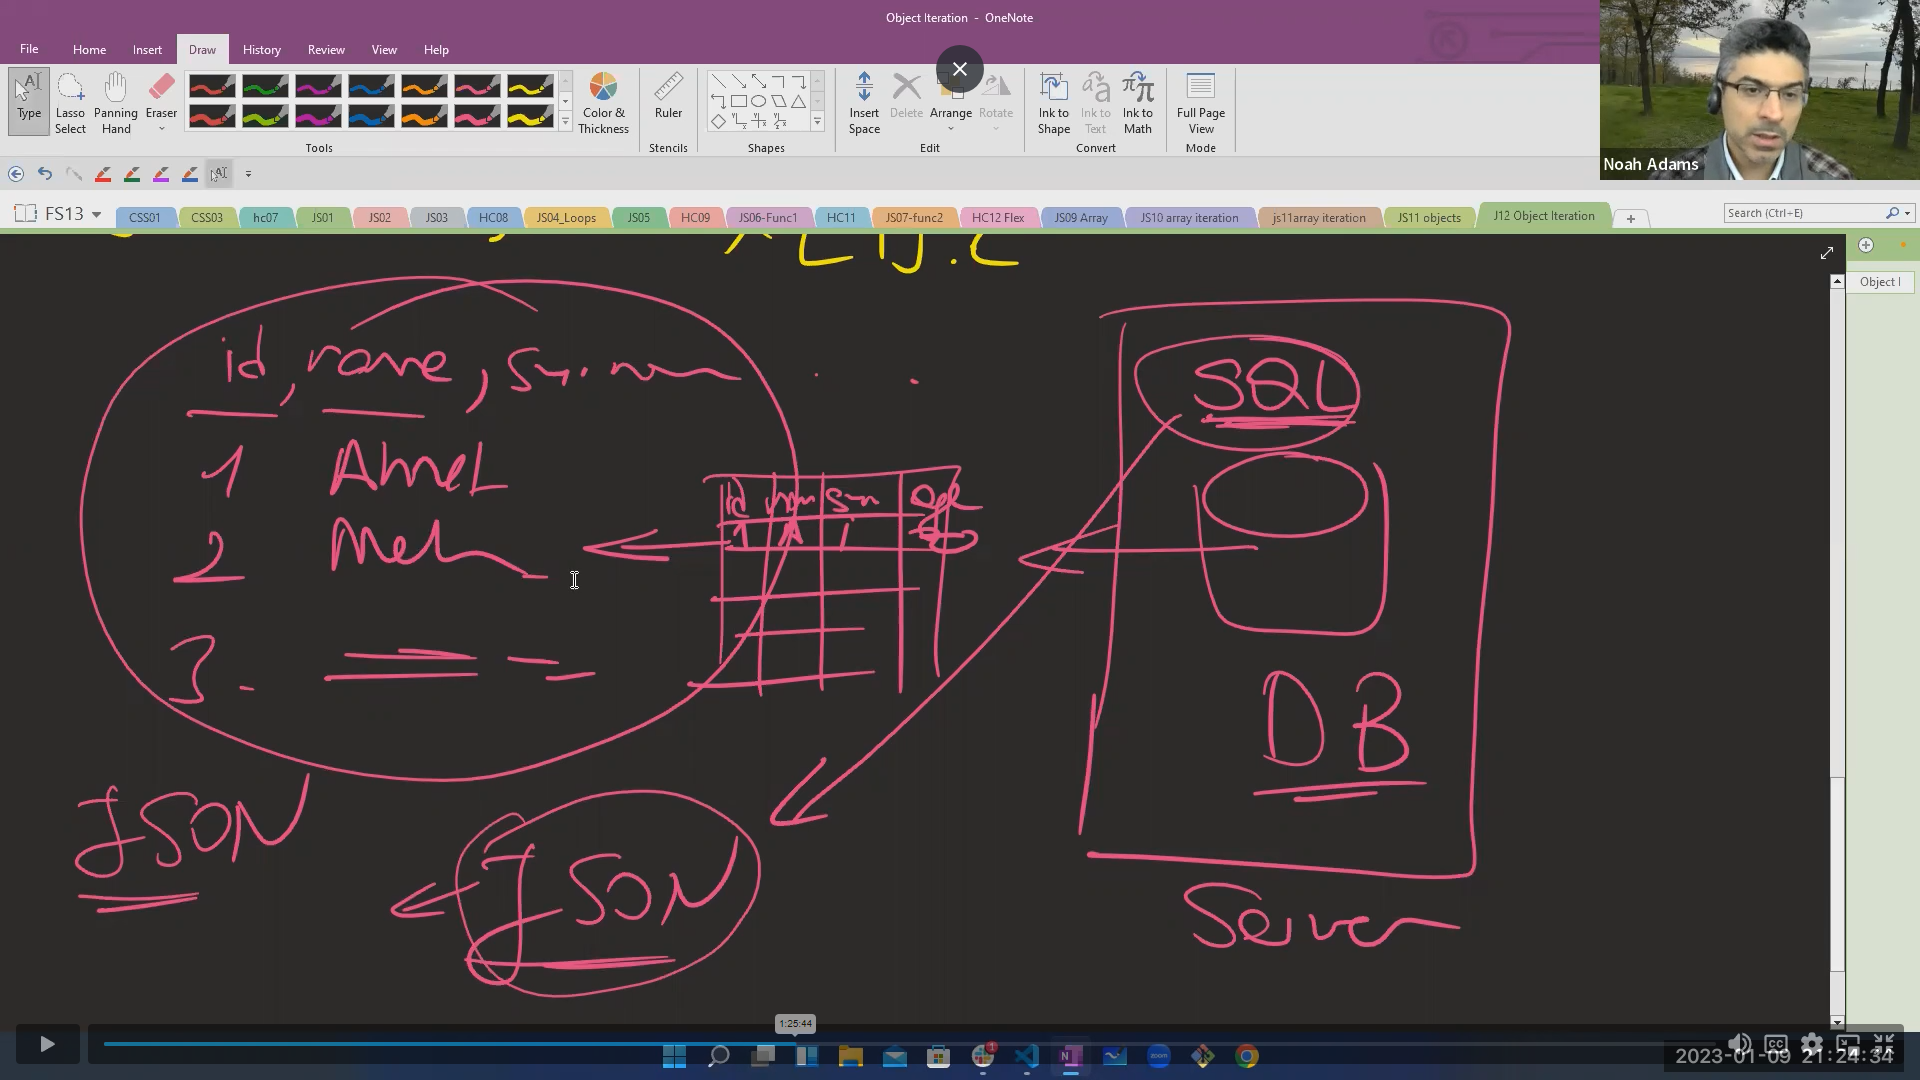 Object Iteration - OneNote
File Home Insert Draw History Review View Help
Type Lasso Select Panning Hand Eraser Color & Thickness Ruler Insert Space Delete Arrange Rotate Ink to Shape Ink to Text Ink to Math Full Page View
Tools Stencils Shapes Edit Convert Mode
Noah Adams
FS13 CSS01 CSS03 hc07 JS01 JS02 JS03 HC08 JS04_Loops JS05 HC09 JS06-Func1 HC11 JS07-func2 HC12 Flex JS09 Array JS10 array iteration js11array iteration JS11 objects J12 Object Iteration Search (Ctrl+E)
Object I
id, name,
SQL
1 Ahmet
2
id
3.
DB
JSON
JSON
Server
1:25:44
2023-01-09 21:24:34